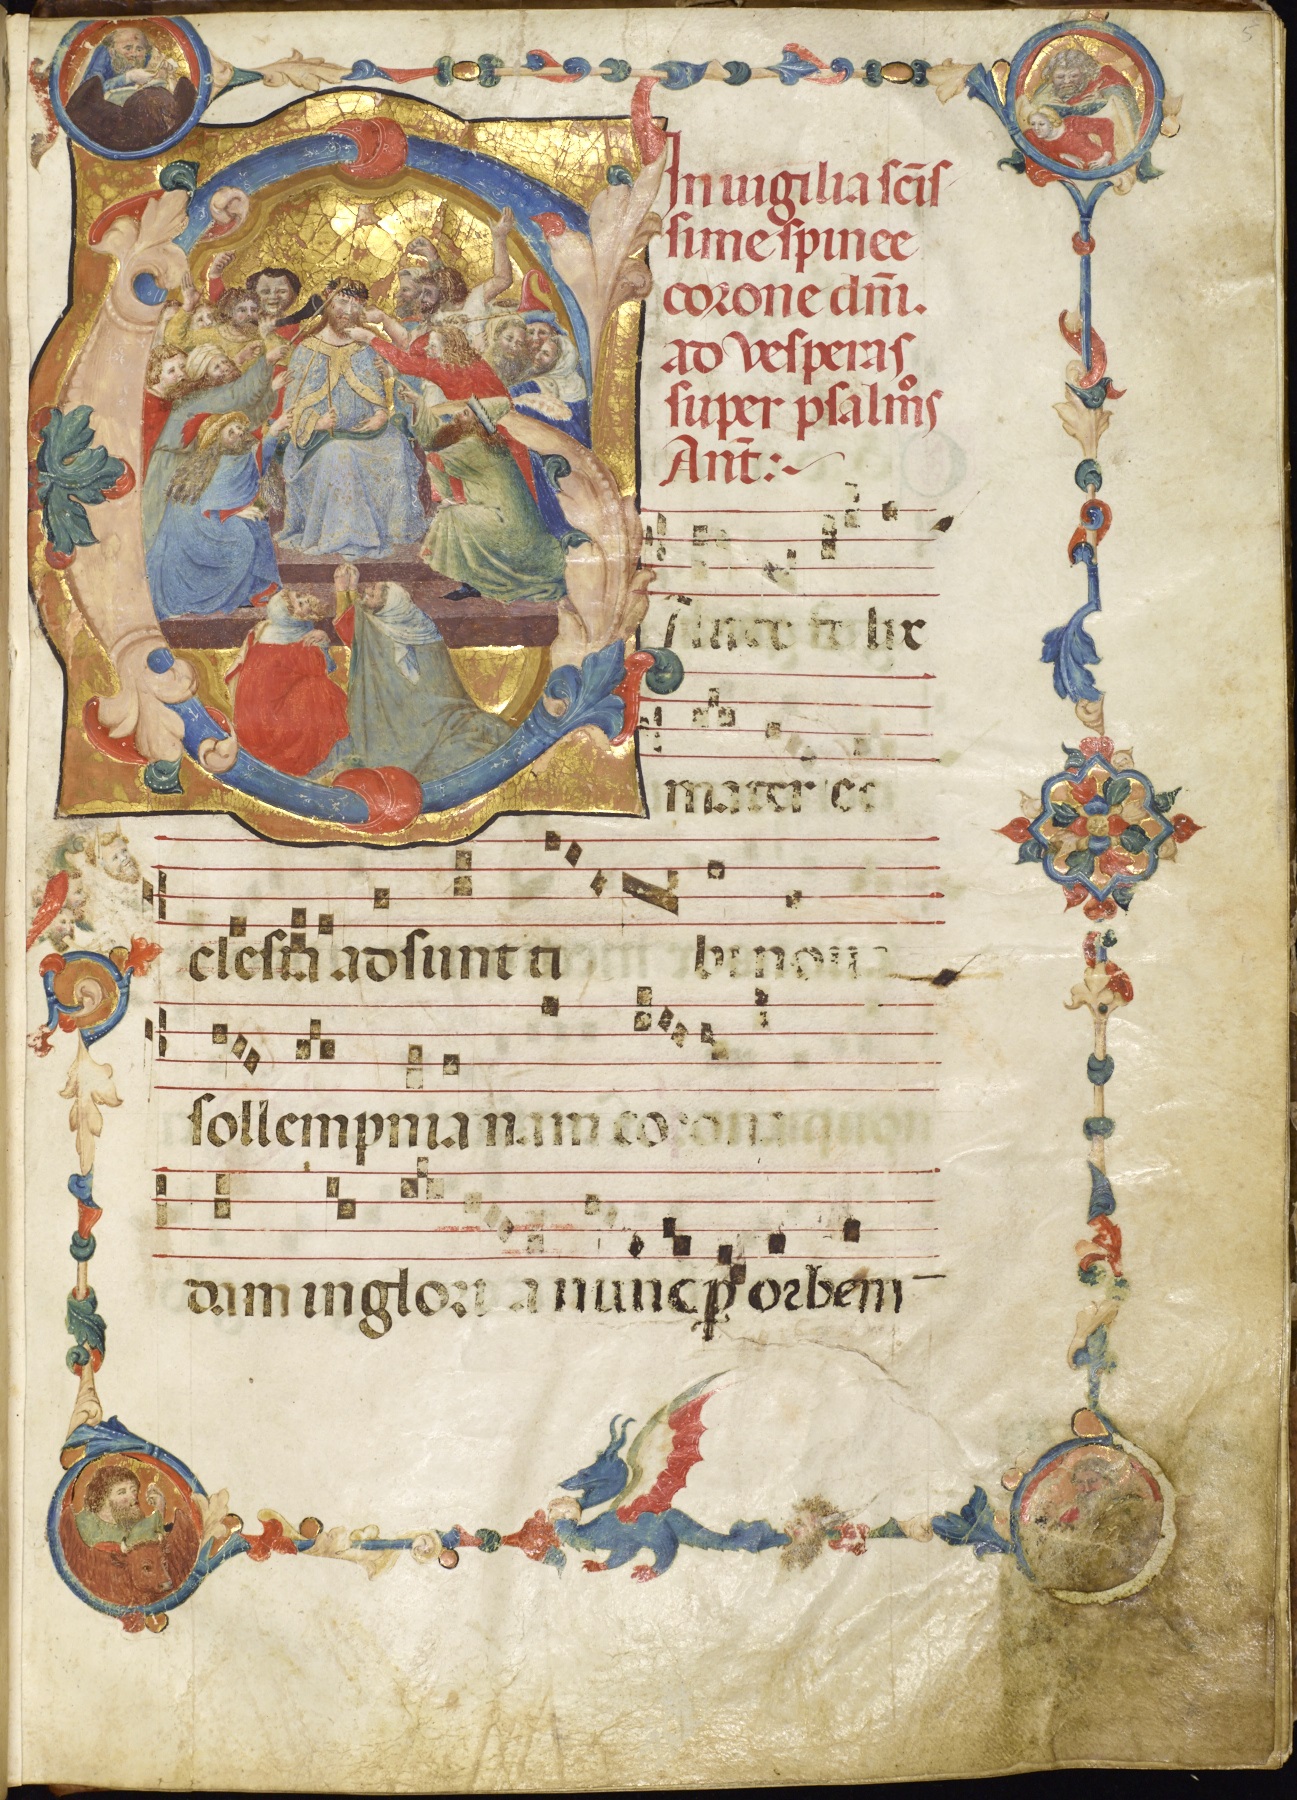 In uigilia scīs
sime spinee
corone dn̄i.
ad vesperas
super psalmos
Ant̄:
felix
mater ec
clesia adsunt ti bi noua
sollempnia nam coron
dam in glori a nunc ꝑ orbem
5